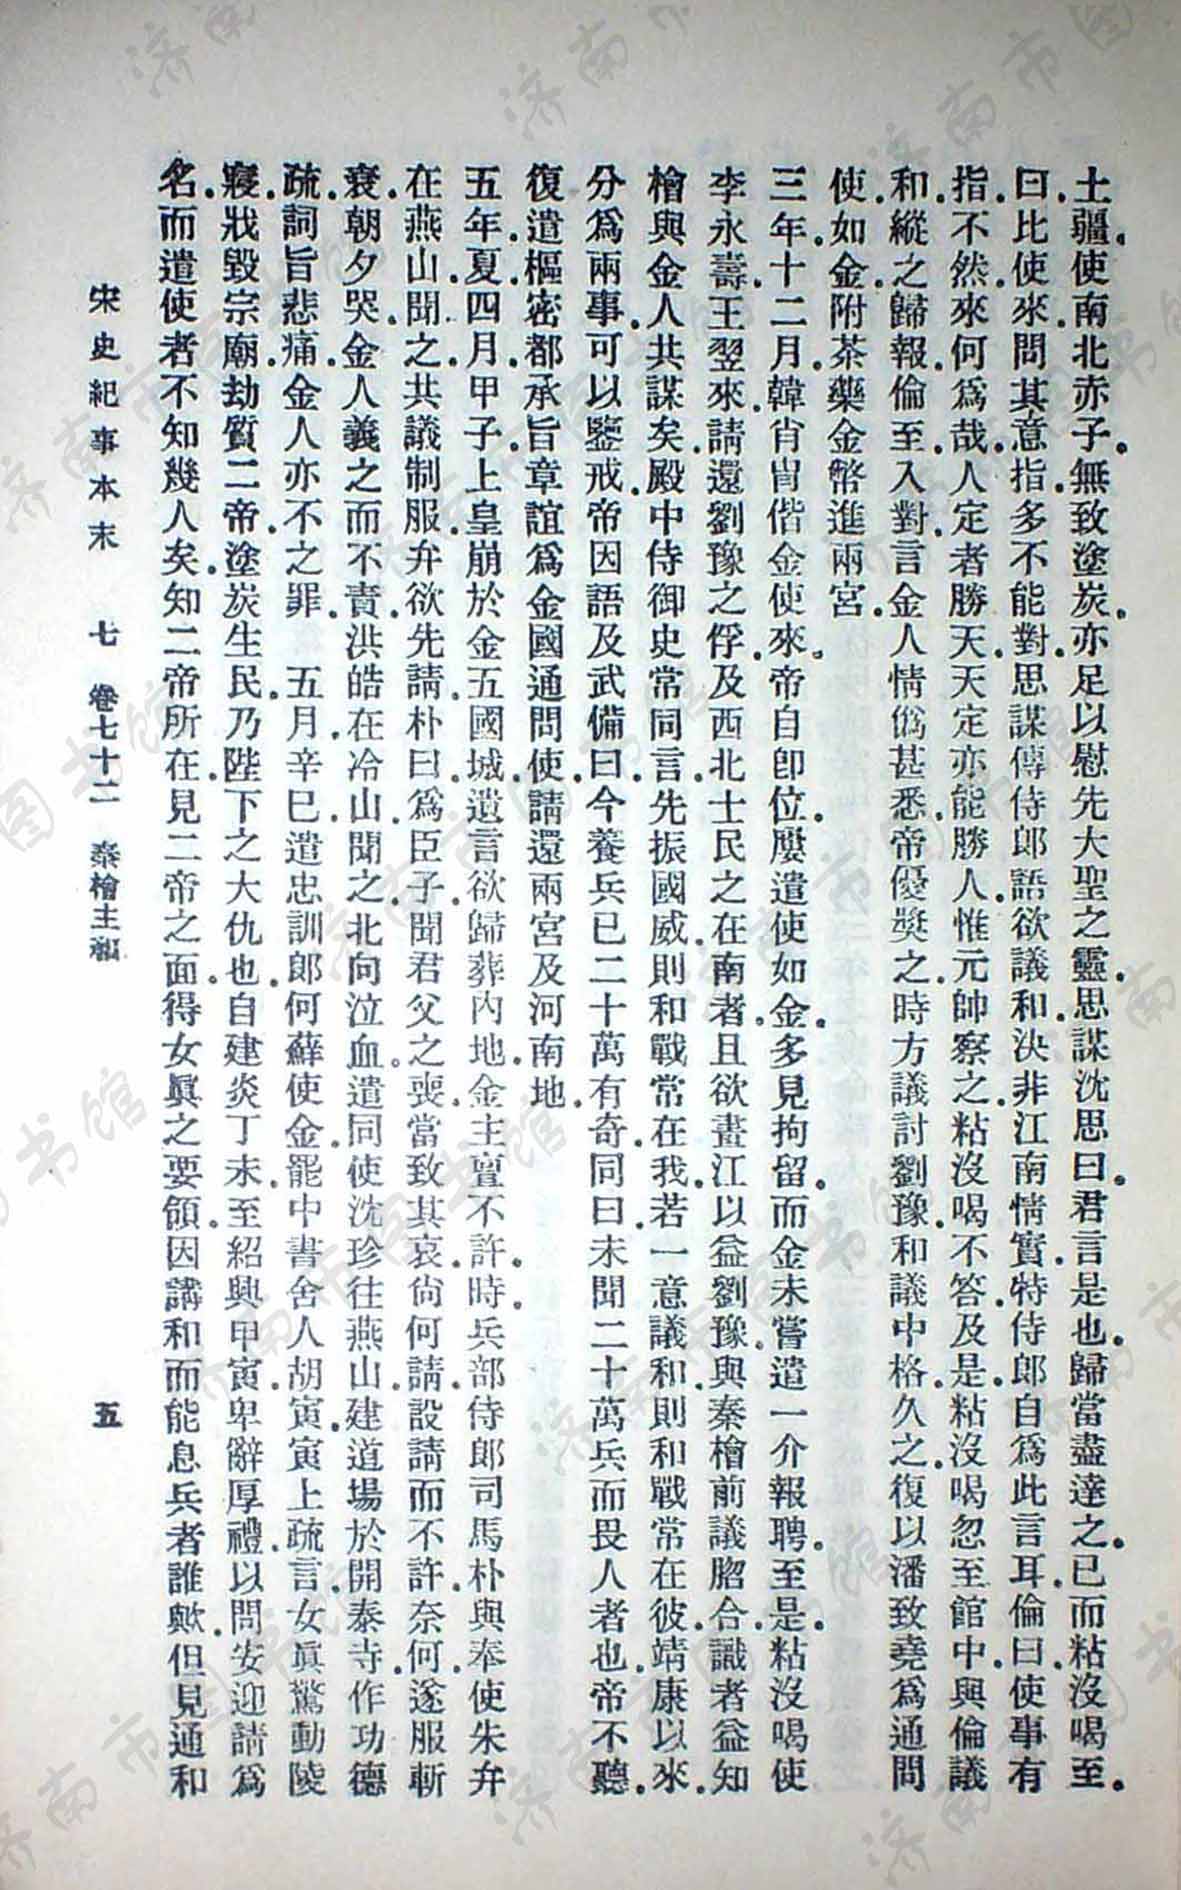 土疆使南北亦子無致塗炭亦足以慰先大聖之靈思謀沈思曰君言是也歸當盡達之已而粘沒喝至
曰比使來問其意指多不能對思謀傳侍郎語欲議和決非江南情實特侍郎自爲此言耳倫曰使事有
指不然來何爲哉人定者勝天天定亦能勝人惟元帥察之粘沒喝不答及是粘沒喝忽至館中與倫議
和縱之歸報倫至入對言金人情僞甚悉帝優獎之時方議討劉豫和議中格久之復以潘致堯爲通問
使如金附茶藥金幣進兩宮
三年十二月韓肖冑偕金使來帝自卽位屢遣使如金多見拘留而金未嘗遣一介報聘至是粘沒喝使
李永壽王翌來請還劉豫之俘及西北士民之在南者且欲畫江以益劉豫與秦檜前議脗合識者益知
檜與金人共謀矣殿中侍御史常同言先振國威則和戰常在我若一意議和則和戰常在彼靖康以來
分爲兩事可以鑒戒帝因語及武備曰今養兵已二十萬有奇同曰未聞二十萬兵而畏人者也帝不聽
復遣樞密都承旨章誼爲金國通問使請還兩宮及河南地
五年夏四月甲子上皇崩於金五國城遺言欲歸葬內地金主亶不許時兵部侍郎司馬朴與奉使朱弁
在燕山聞之共議制服弁欲先請朴曰爲臣子聞君父之喪當致其哀尙何請設請而不許奈何遂服斬
衰朝夕哭金人義之而不責洪皓在冷山聞之北向泣血遣同使沈珍往燕山建道場於開泰寺作功德
疏詞旨悲痛金人亦不之罪 五月辛巳遣忠訓郎何蘚使金罷中書舍人胡寅寅上疏言女眞驚動陵
寢戕毀宗廟劫質二帝塗炭生民乃陛下之大仇也自建炎丁未至紹興甲寅卑辭厚禮以問安迎請爲
名而遣使者不知幾人矣知二帝所在見二帝之面得女眞之要領因講和而能息兵者誰歟但見通和
宋史紀事本末 七 卷七十二 秦檜主和 五
济南市图书馆